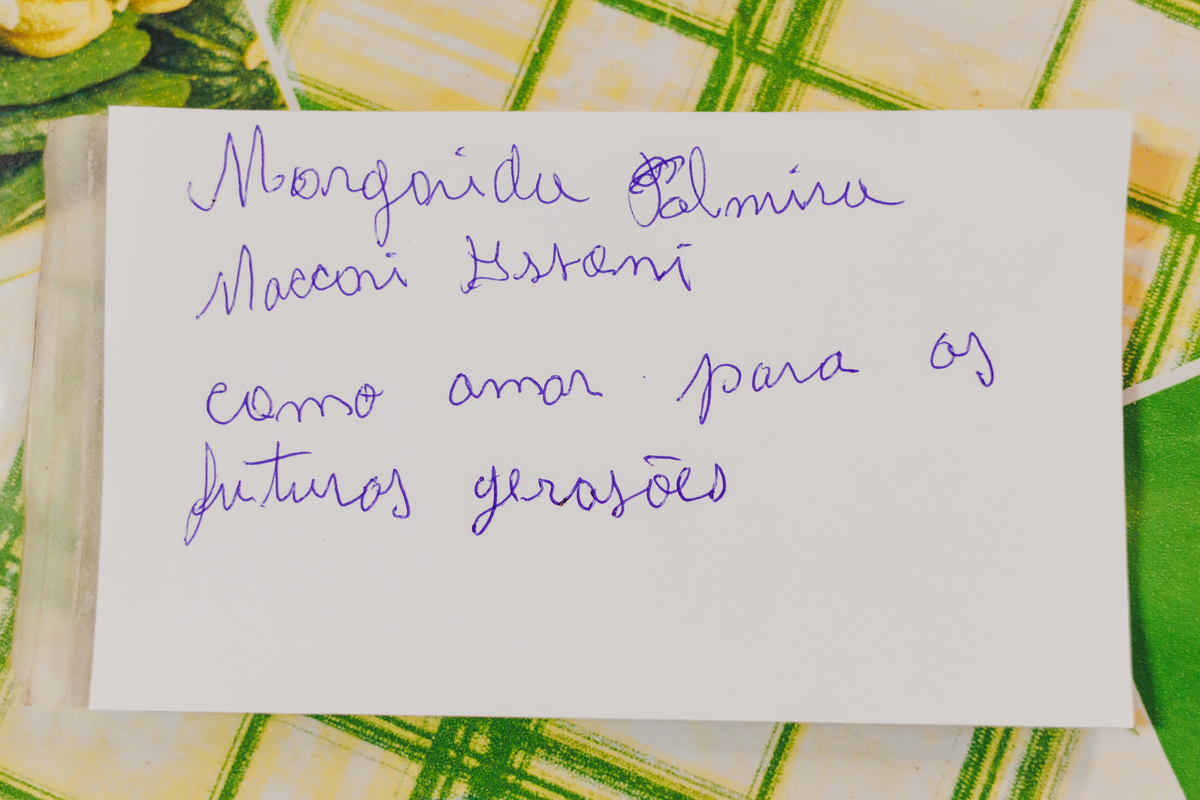 Margarida Palmira
Maccari Istani
como amor para as
futuras gerasões